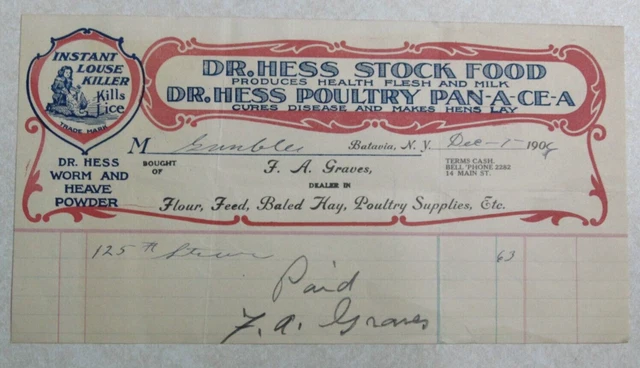 INSTANT
LOUSE
KILLER
Kills
Lice
TRADE MARK
DR. HESS
WORM AND
HEAVE
POWDER
DR. HESS STOCK FOOD
PRODUCES HEALTH FLESH AND MILK
DR. HESS POULTRY PAN-A-CE-A
CURES DISEASE AND MAKES HENS LAY
M Batavia, N. Y. Dec - 1 - 190
BOUGHT OF F. A. Graves,
TERMS CASH.
BELL 'PHONE 2282
14 MAIN ST.
DEALER IN
Flour, Feed, Baled Hay, Poultry Supplies, Etc.
125 63
Paid
F. A. Graves